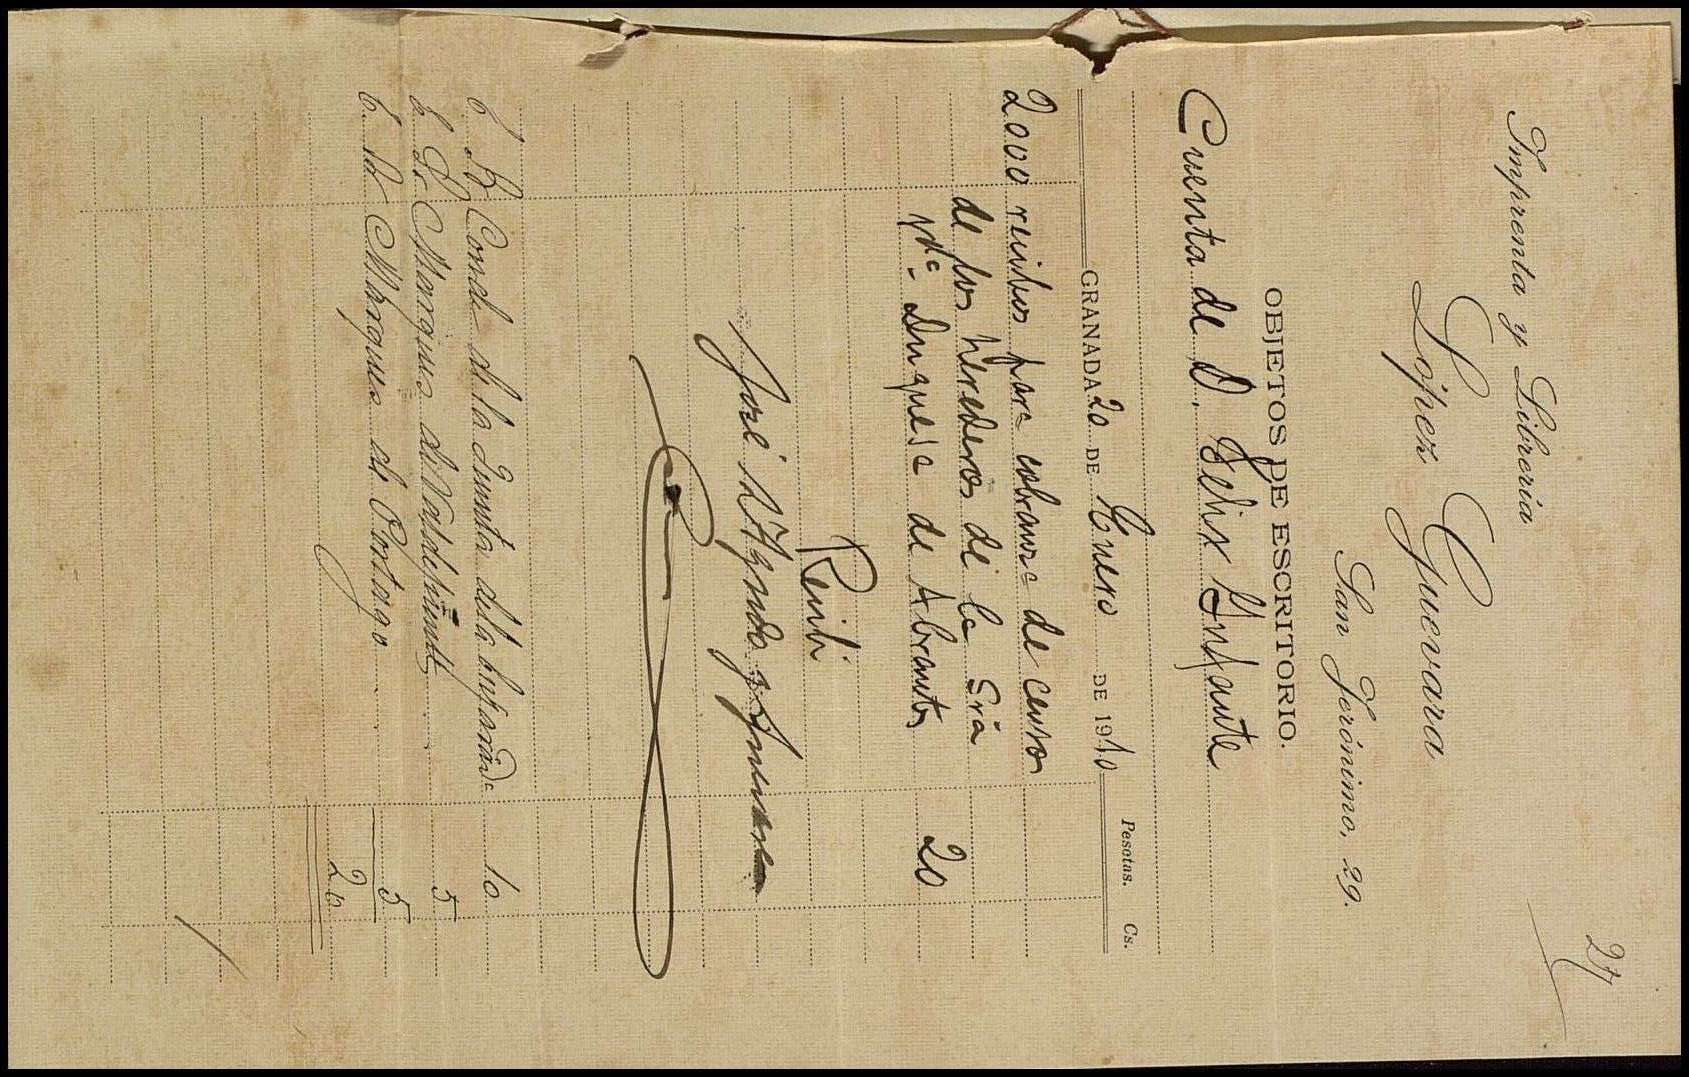 27
Imprenta y Librería
López Guevara
San Jerónimo, 29.
OBJETOS DE ESCRITORIO.
Cuenta de D. Felix Infante
Pesetas. Cs.
GRANADA 20 DE Enero DE 1910
2000 recibos para cobranza de censos
de los herederos de la Sra
Duquesa de Abrantes 20
Recibí
José
Conde de la Quinta de la Enjarada 10
Marques de Valdefuentes 5
Marques de Portago 5
20